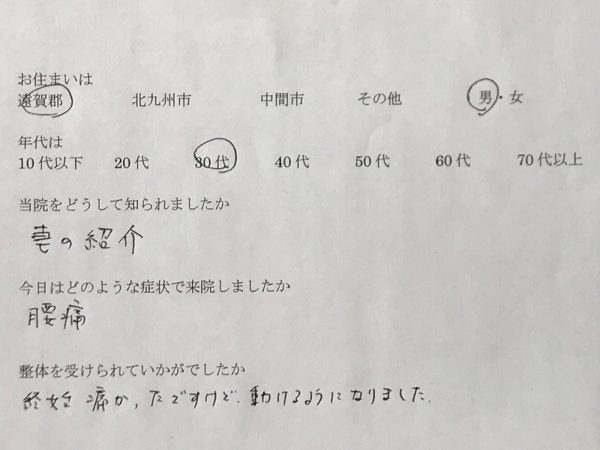 お住まいは
遠賀郡 北九州市 中間市 その他 男・女
年代は
10代以下 20代 30代 40代 50代 60代 70代以上
当院をどうして知られましたか
妻の紹介
今日はどのような症状で来院しましたか
腰痛
整体を受けられていかがでしたか
終始 痛かったですけど、動けるようになりました。